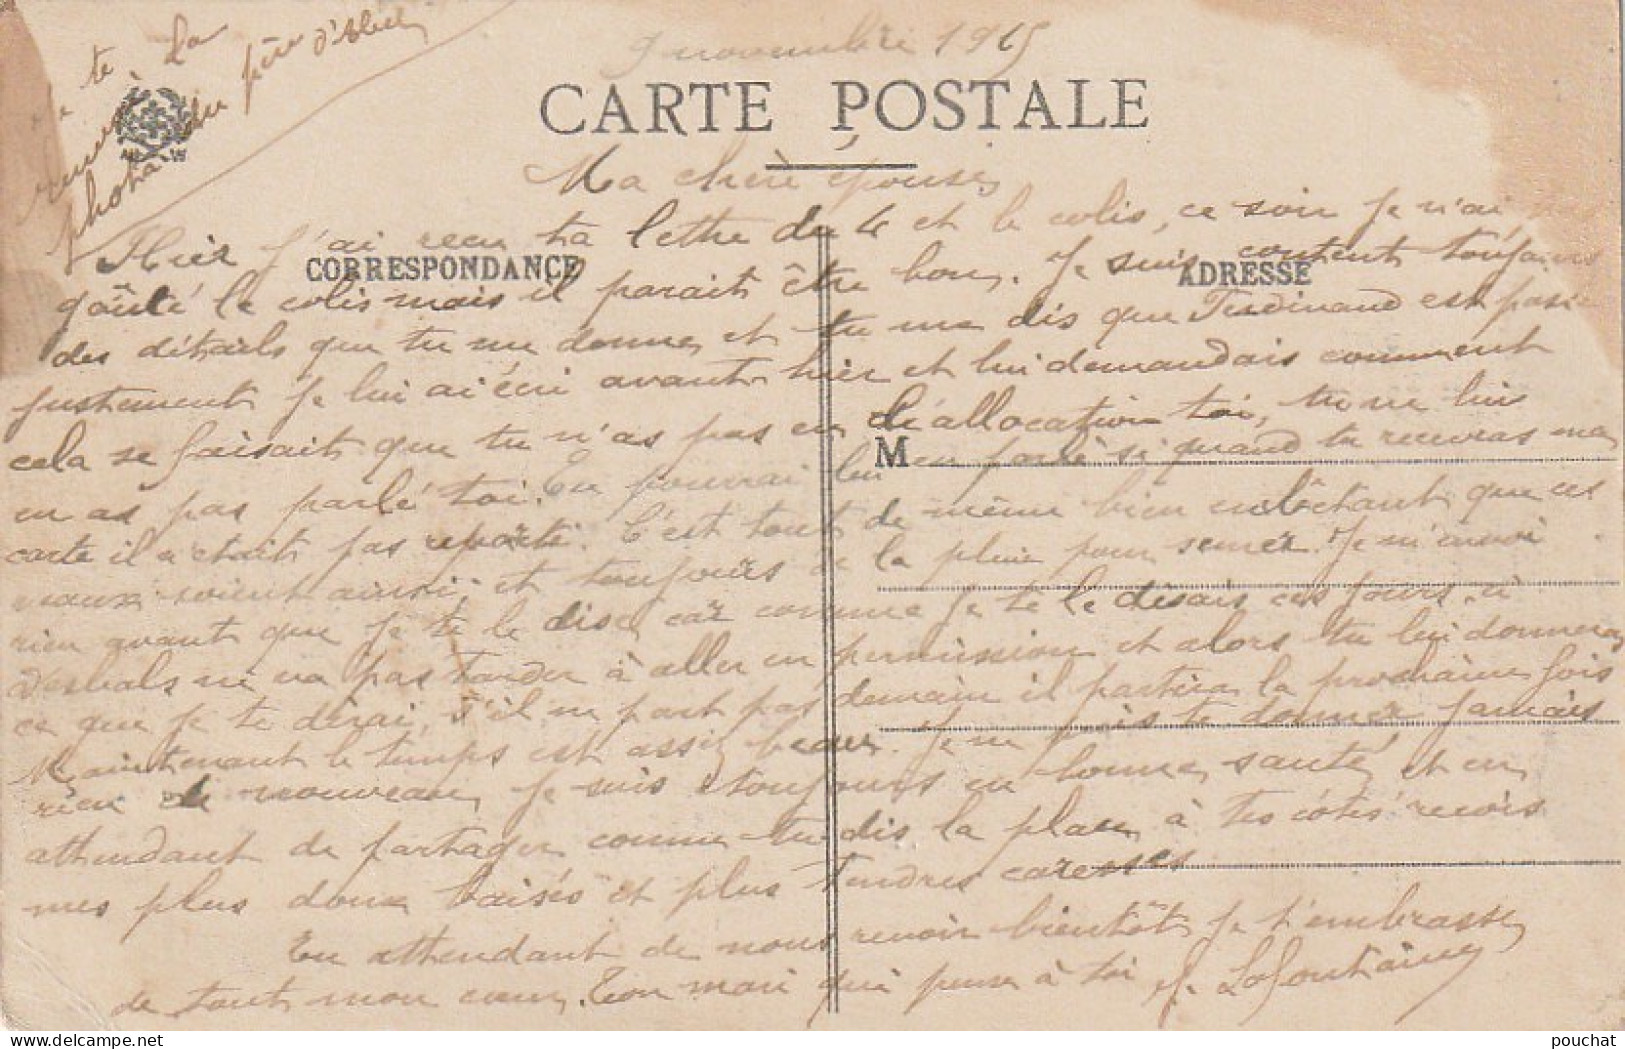 te la
photo du père d'Albert
9 novembre 1915
CARTE POSTALE
Ma chère épouse,
Hier j'ai recu ta lettre du 4 et le colis, ce soir je n'ai
CORRESPONDANCE
ADRESSE
goûté le colis mais il parait être bon. Je suis content toujours
des détails que tu me donne et tu me dis que Ferdinand est passé
justement je lui ai écri avant hier et lui demandais comment
cela se faisait que tu n'as pas eu de allocation toi, tu ne lui
M
en as pas parlé toi. Tu pourrai lui en parlé si quand tu recevras ma
carte il était pas reparti. C'est tout de même bien embêtant que ces
maux soient ainsi et toujours de la pluie pour semer. Je m'envoi
rien avant que je te le dise car comme je te le disais ces jours-ci
Desbals ne va pas tarder à aller en permission et alors tu lui donneras
ce que je te dirai, s'il ne part pas demain il partira la prochaine fois
Maintenant le temps est assez beau. Je ne te donner jamais
rien de nouveau, je suis toujours en bonne santé et en
attendant de partager comme tu dis la place à tes côtés recois
mes plus doux baisés et plus tendres caresses
En attendant de nous revoir bientôt je t'embrasse
de tout mon cœur. Ton mari qui pense à toi J. Lafontaine
pouchat